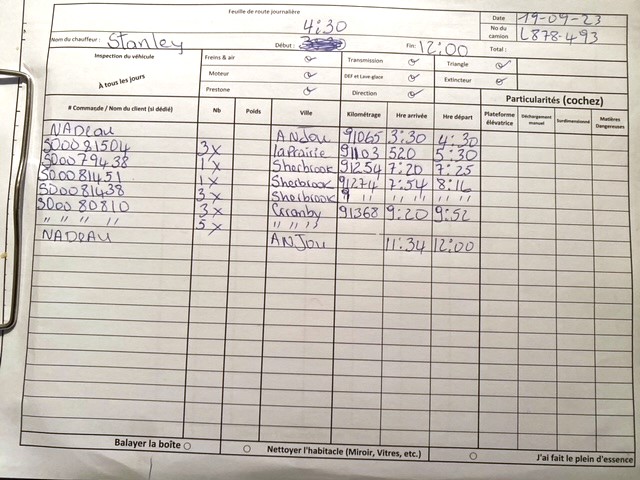 Feuille de route journalière
Date 19-09-23
4:30
No du camion L878-493
Nom du chauffeur : Stanley Début : Fin: 12:00 Total :
Inspection du véhicule
À tous les jours
Freins & air Transmission Triangle
Moteur DEF et Lave glace Extincteur
Prestone Direction
Particularités (cochez)
# Commande / Nom du client (si dédié) Nb Poids Ville Kilométrage Hre arrivée Hre départ Plateforme élévatrice Déchargement manuel Surdimensionné Matières Dangereuses
NADEAU ANJOU 91065 3:30 4:30
S00081504 3x laPrairie 91103 520 5:30
S00079438 1x Sherbrook 91254 7:20 7:25
S00081451 1x Sherbrook 91274 7:54 8:16
S00081438 3x Sherbrook " " " " " " "
S00080810 3x Granby 91368 9:20 9:52
" " " " 5x " " " "
NADEAU ANJOU 11:34 12:00
Balayer la boîte Nettoyer l'habitacle (Miroir, Vitres, etc.) J'ai fait le plein d'essence